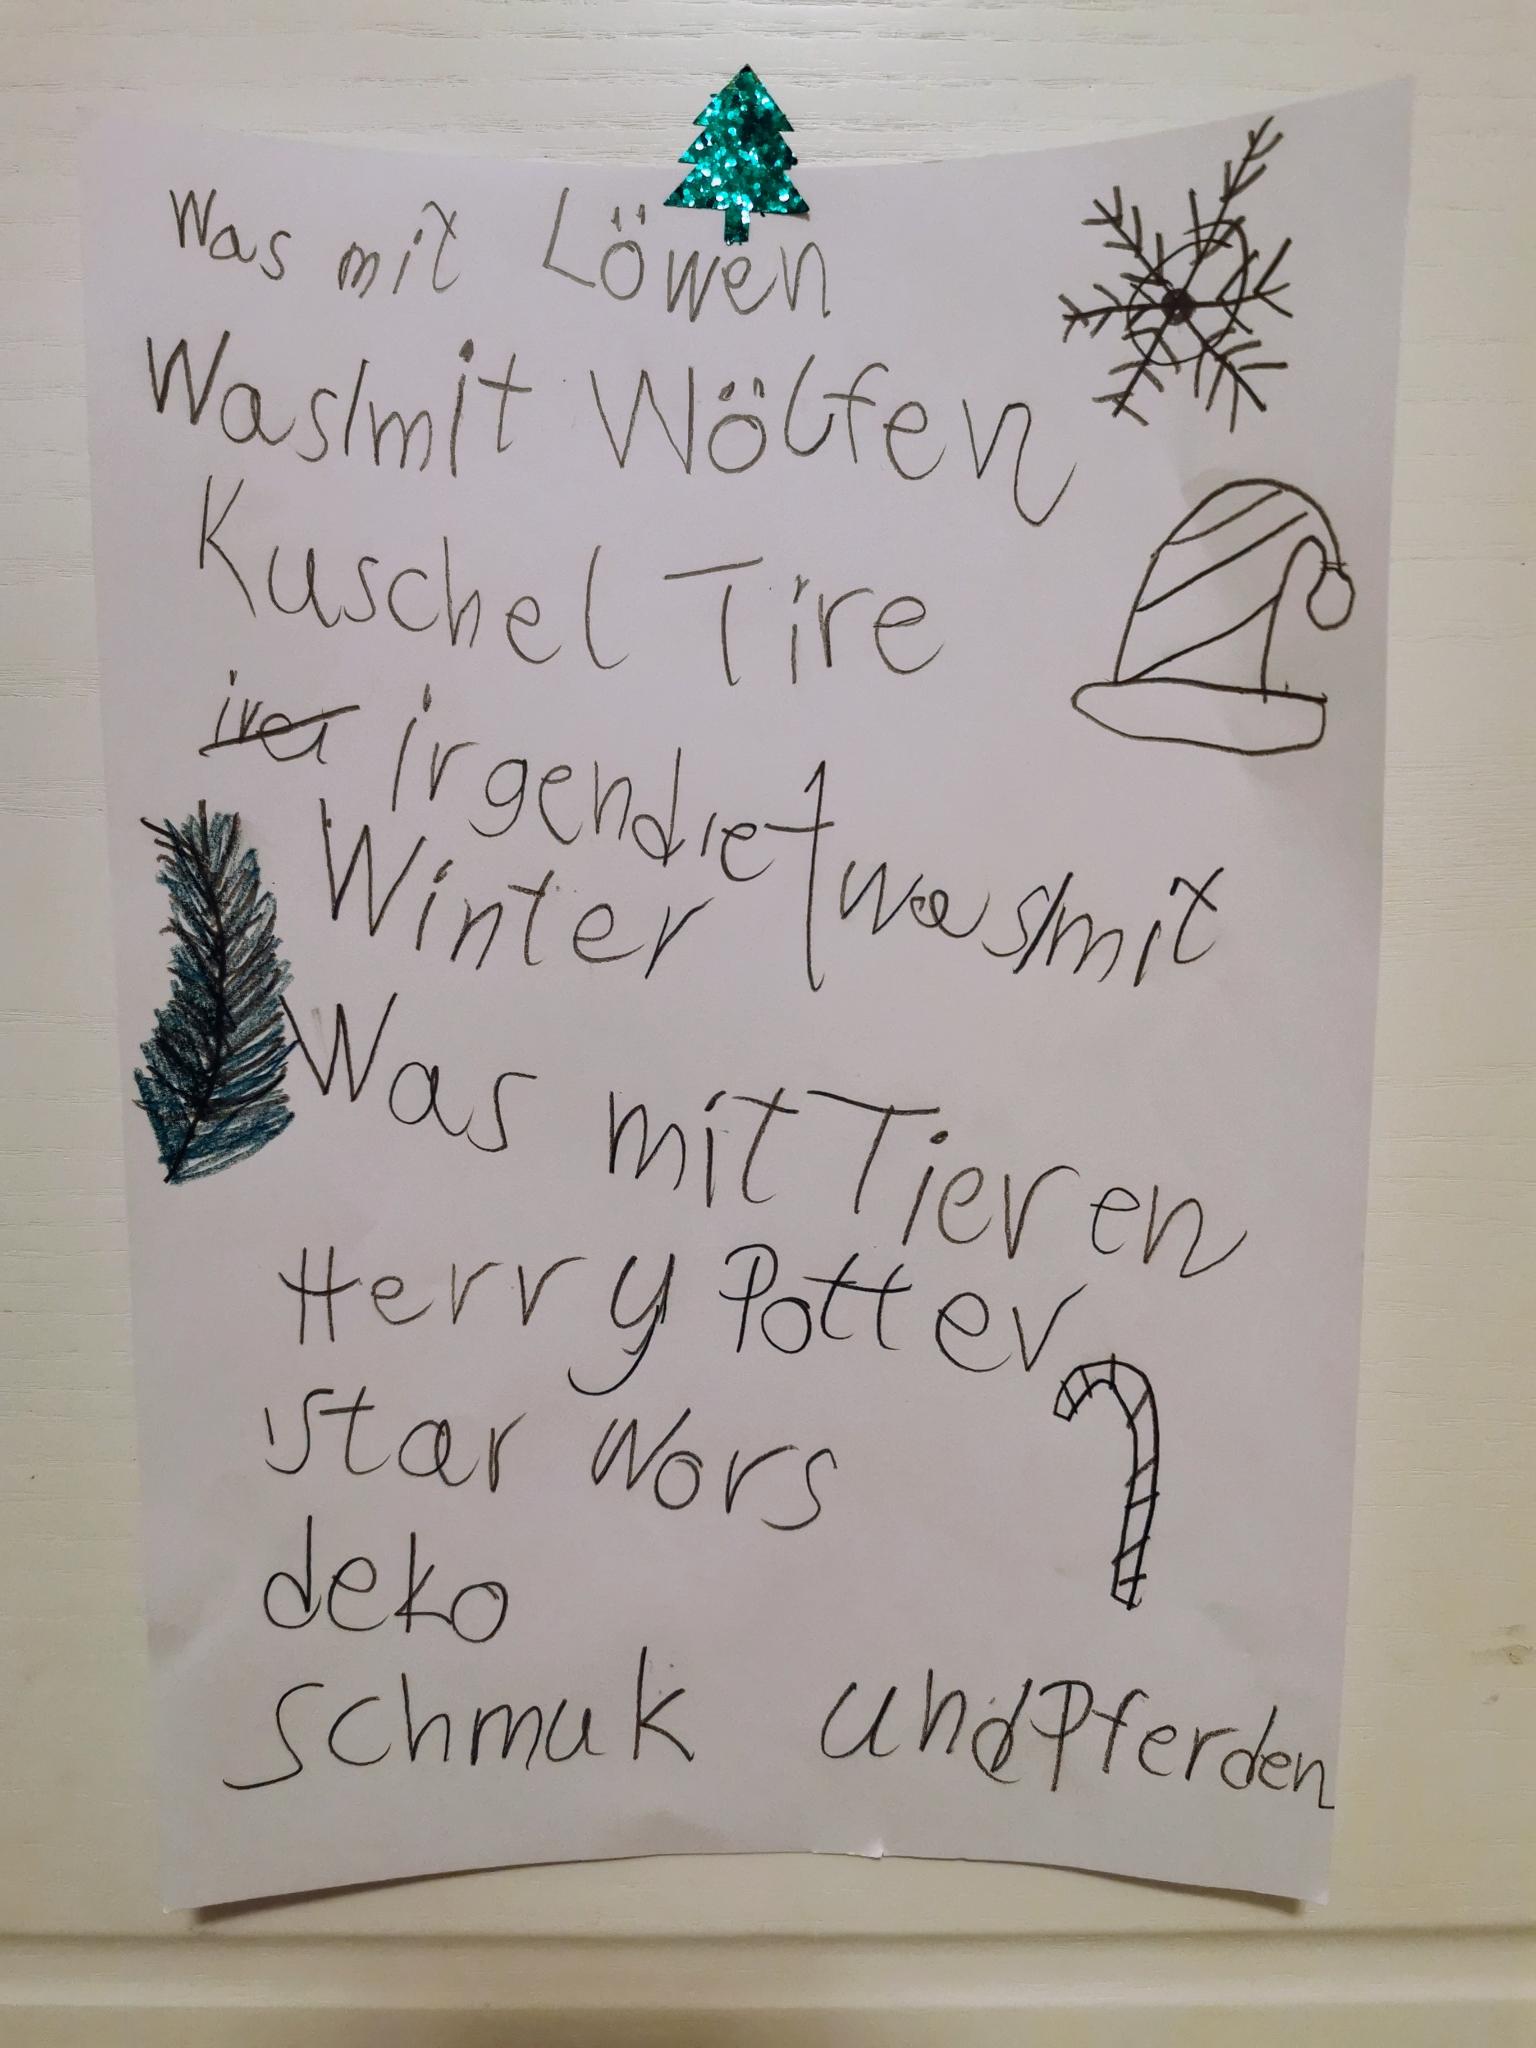 Was mit Löwen
Was/mit Wölfen
Kuschel Tire
irgend
Winter
was/mit
Was mit Tieren
Herry Potter
Star Wors
deko
Schmuk und Pferden